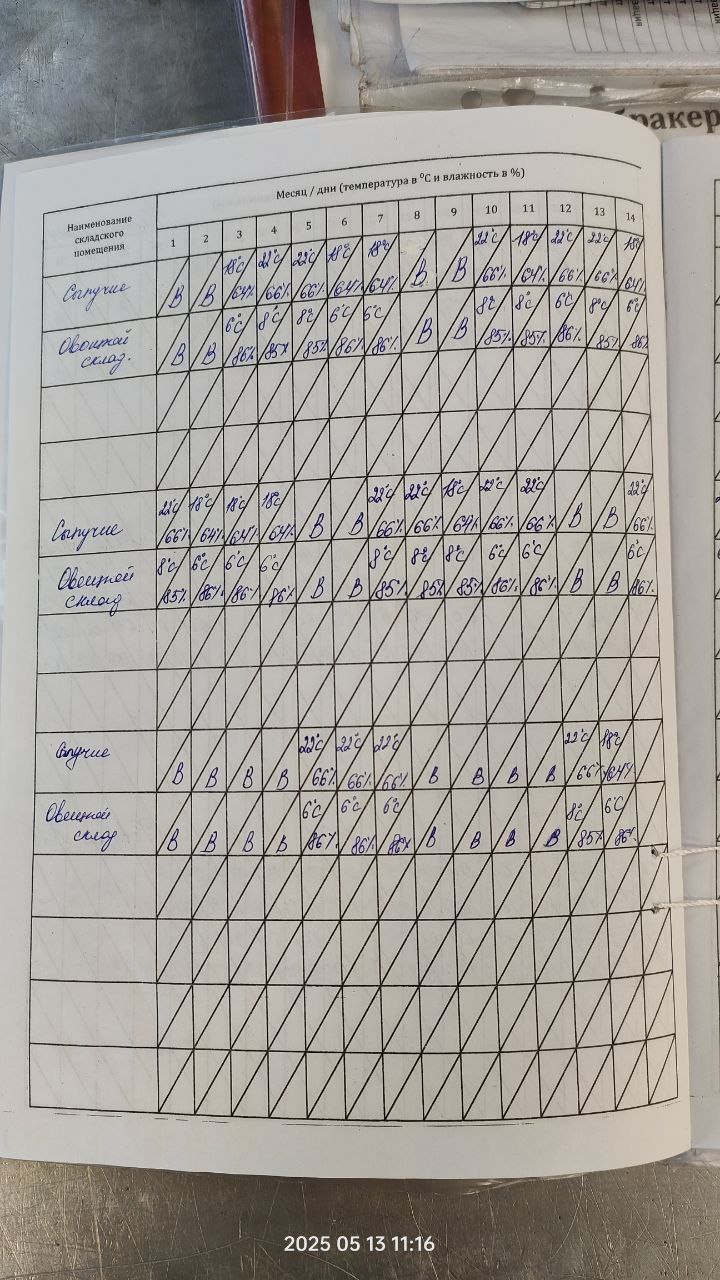 зация
бракер
Месяц / дни (температура в °С и влажность в %)
Наименование
складского
помещения
1 2 3 4 5 6 7 8 9 10 11 12 13 14
18°С 22°С 22°С 18°С 18°С 22°С 18°С 22°С 22°С 18°С
Сыпучие В В 64% 66% 66% 64% 64% В В 66% 64% 66% 66% 64%
6°С 8°С 8°С 6°С 6°С 8°С 8°С 6°С 8°С 6°С
Овощной В В 86% 85% 85% 86% 86% В В 85% 85% 86% 85% 86%
склад.
22°С 18°С 18°С 18°С 22°С 22°С 18°С 22°С 22°С 22°С
Сыпучие 66% 64% 64% 64% В В 66% 66% 64% 66% 66% В В 66%
8°С 6°С 6°С 6°С 8°С 8°С 8°С 6°С 6°С 6°С
Овощной 85% 86% 86% 86% В В 85% 85% 85% 86% 86% В В 86%
склад
22°С 22°С 22°С 22°С 18°С
Сыпучие В В В В 66% 66% 66% В В В В 66% 64%
6°С 6°С 6°С 8°С 6°С
Овощной В В В В 86% 86% 86% В В В В 85% 86%
склад
2025 05 13 11:16